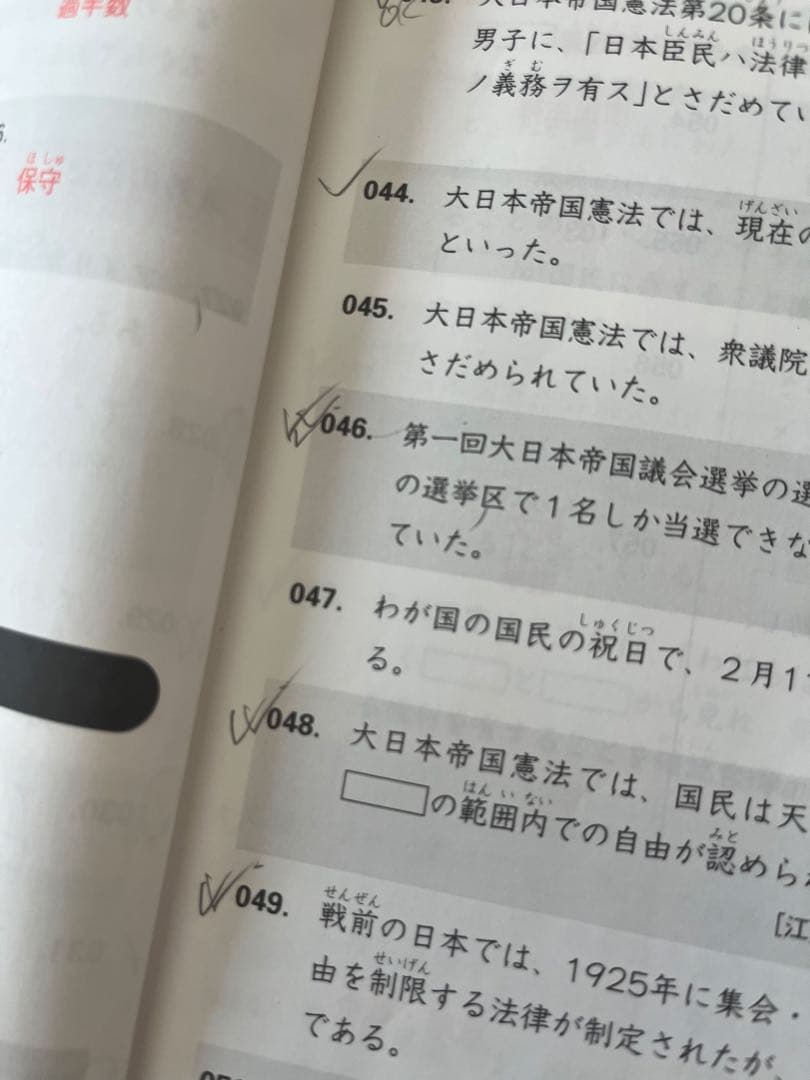 過半数
保守
ほしゅ
大日本帝国憲法第20条に
男子に、「日本臣民ハ法律
しんみん
ほうりつ
ノ義務ヲ有ス」とさだめてい
ぎむ
044. 大日本帝国憲法では、現在の
げんざい
といった。
045. 大日本帝国憲法では、衆議院
さだめられていた。
046. 第一回大日本帝国議会選挙の選
の選挙区で1名しか当選できな
ていた。
047. わが国の国民の祝日で、2月1
しゅくじつ
る。
048. 大日本帝国憲法では、国民は天
の範囲内での自由が認めら
はんいない
みと
[江
049. 戦前の日本では、1925年に集会・
せんぜん
由を制限する法律が制定されたが、
せいげん
である。